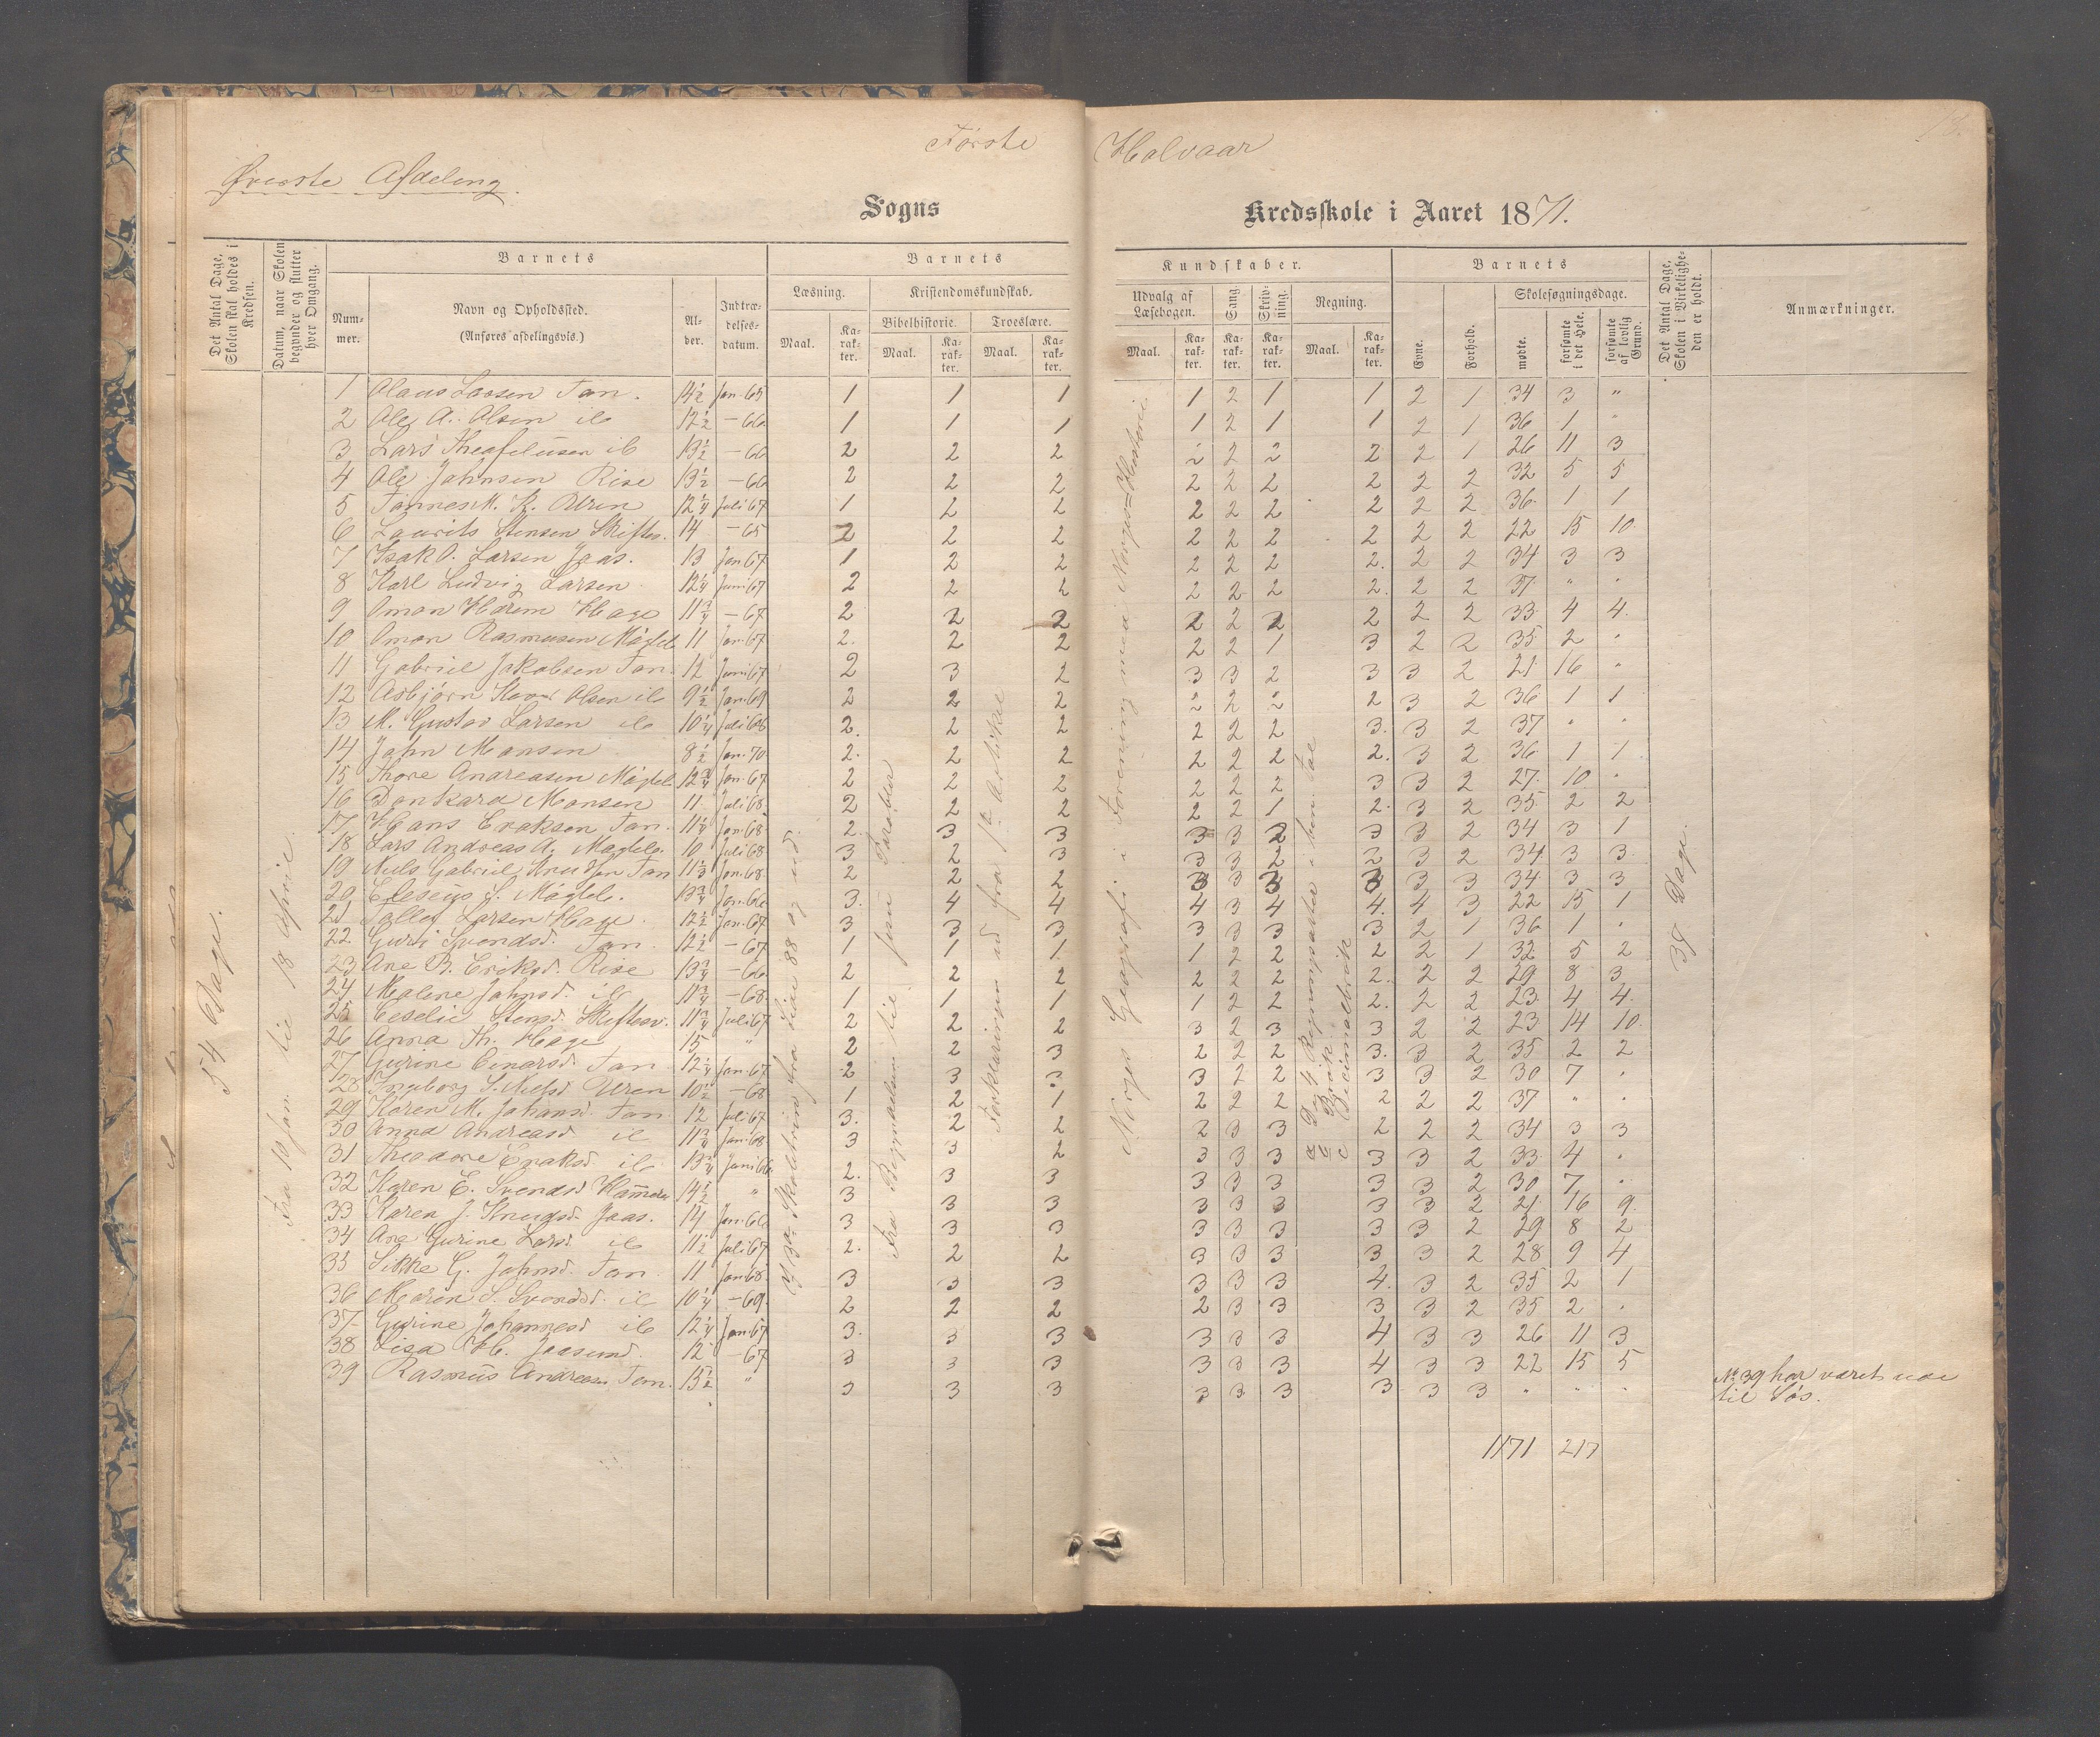 Første Halvaar
13.
Øverste Afdeling.
Sogns Kredsskole i Aaret 1871.
Det Antal Dage, Skolen skal holdes i Kredsen.
Datum, naar Skolen begynder og slutter hver Omgang.
Barnets
Barnets
Kundskaber.
Barnets
Det Antal Dage, Skolen i Virkelighe-den er holdt.
Anmærkninger.
Num-mer.
Navn og Opholdssted.
(Anføres afdelingsvis.)
Al-der.
Indtræ-delses-datum.
Læsning.
Kristendomskundskab.
Bibelhistorie.
Troeslære.
Udvalg af Læsebogen.
Sang.
Skriv-ning.
Regning.
Evne.
Forhold.
Skolesøgningsdage.
mødte.
forsømte i det Hele.
forsømte af lovlig Grund.
Maal.
Ka-rak-ter.
Maal.
Ka-rak-ter.
Maal.
Ka-rak-ter.
Maal.
Ka-rak-ter.
Ka-rak-ter.
Ka-rak-ter.
Maal.
Ka-rak-ter.
54 Dage.
Fra 10 Jan. til 18 April.
fra Side 88 og ud.
Fra Bergprædiken til Jesu Parabler
Forklaringen ud fra 1ste Artikel
Norges Geografi i Forening med Norges Historie.
a De 4 Regningsarter i ben. Tal
b Brøk.
c Decimalbrøk
38 Dage.
1 Olaus Larsen Tan. 14½ Jan. 65 1 1 1 1 2 1 1 2 1 34 3 "
2 Ole A. Olsen ib 12½ - 66 1 1 1 1 2 1 1 2 1 36 1 "
3 Lars Theofelusen ib 13½ - 66 2 2 2 2 2 2 2 2 1 26 11 3
4 Ole Jahnsen Rise 13½ - 66 2 2 2 2 2 2 2 2 2 32 5 5
5 Tønnes M. K. Uren 12¼ Juli 67 1 2 2 2 2 2 2 2 2 36 1 1
6 Laurits Stensen Skiftes. 14 - 65 2 2 2 2 2 2 2 2 2 22 15 10
7 Isak O. Larsen Jaas. 13 Jan 67 1 2 2 2 2 2 2. 2 2 34 3 3
8 Karl Ludvig Larsen 12¼ Juni 67 2 2 2 2 2 2 2. 2 2 37 " "
9 Oman Hage 11¾ - 67 2 2 2 2 2 2 2 2 2 33 4 4
10 Oman Rasmusen Mágeb 11 Jan. 67 2. 2 2 2 2 1 3 2 2 35 2 "
11 Gabriel Jakobsen Tan. 12 Juni 67 2 3 2 3 3 2 3 3 2 21 16 "
12 Asbjørn Olsen ib 9½ Jan. 69 2 2 2 2 2 2 2 3 2 36 1 1
13 M. Gustav Larsen ib 10¼ Juli 68 2. 2 2 2 2 2 3. 3 2 37 " "
14 Jahn Monsen 8½ Jan. 70 2. 2 2 2 2 2 2. 3 2 36 1 1
15 Thore Andreasen 12¾ Jan. 67 2 2 2 2 2 2 3 3 2 27 10 "
16 Dankard Monsen 11 Juli 68 2 2 2 2 2 1 2. 3 2 35 2 2
17 Hans Eriksen Tan. 11¼ Jan. 68 2. 3 3 3 3 2 3 3 2 34 3 1
18 Lars Andreas A. 10 Juli 68 3 2 3 3 3 2 2 3 2 34 3 3
19 Nils Gabriel Knudsen Tan 11½ Jan. 68 2 2 2 3 3 3 2 3 3 34 3 3
20 Eleseus S. 13¾ Jan. 66 3. 4 4 4 3 4 4. 4 3 22 15 1
21 Tollef Larsen Hage. 12½ Jan. 67 3 3 3 3 3 3 3 2 1 36 1 "
22 Guri Svendsd. Tan. 12½ - 67 1 1 1 1 2 2 2 2 1 32 5 2
23 Ane B. Eriksd. Rise 13¾ - 66 2 2 2 2 2 2 2. 2 2 29 8 3
24 Malene Jahnsd. ib 11¾ - 68 1 1 1 1 2 2 2. 2 2 23 4 4
25 Ceselie Stensd. Skiftesv. 11¾ Juli 67 2 2 2 3 2 3 3 2 2 23 14 10
26 Anna Th. Hage 15 " 2 2 3 2 2 2 3. 3 2 35 2 2
27 Gurine Einarsd. Tan 12¼ Jan. 67 2 3 3 3 2 2 3 3 2 30 7 "
28 Ingeborg S. Nilsd Uren 10½ - 68 1 2 1 2 2 2 2 2 2 37 " "
29 Karen M. Johansd. Tan 12 Juli 67 3. 2 2 2 3 3 2 2 2 34 3 3
30 Anna Andreasd ib 11¾ Jan. 68 3 3 2 3 3 3 3 3 2 33 4 "
31 Theodore Eriksd ib 13¾ Juni 66 2. 3 3 3 3 3 3 3 2 30 7 "
32 Karen E. Svendsd 14½ " 3 3 3 3 3 3 3 3 2 21 16 9
33 Karen J. Knudsd. Jaas. 14 Jan. 66 3 3 3 3 3 3 3 3 2 29 8 2
34 Ane Gurine Larsd. ib 11½ Juli 67 2. 2 2 3 3 3 3 3 2 28 9 4
35 Sikke G. Jahnsd. Tan 11 Jan 68 3 3 3 3 3 3 4. 3 2 35 2 1
36 Maren S. Svendsd. ib 10¼ - 69. 2 2 2 2 3 3 3 3 2 35 2 "
37 Gurine Johannesd ib 12¼ Jan. 67 3. 3 3 3 3 3 4 3 3 26 11 3
38 Lisa H. Jaasund. 12 - 67 3 3 3 3 3 3 4 3 3 22 15 5
39 Rasmus Andreasen Tan. 15½ " 3 3 3 3 3 3 3 3 3 " " "
No 39 har været ude
til Søs.
1171 217